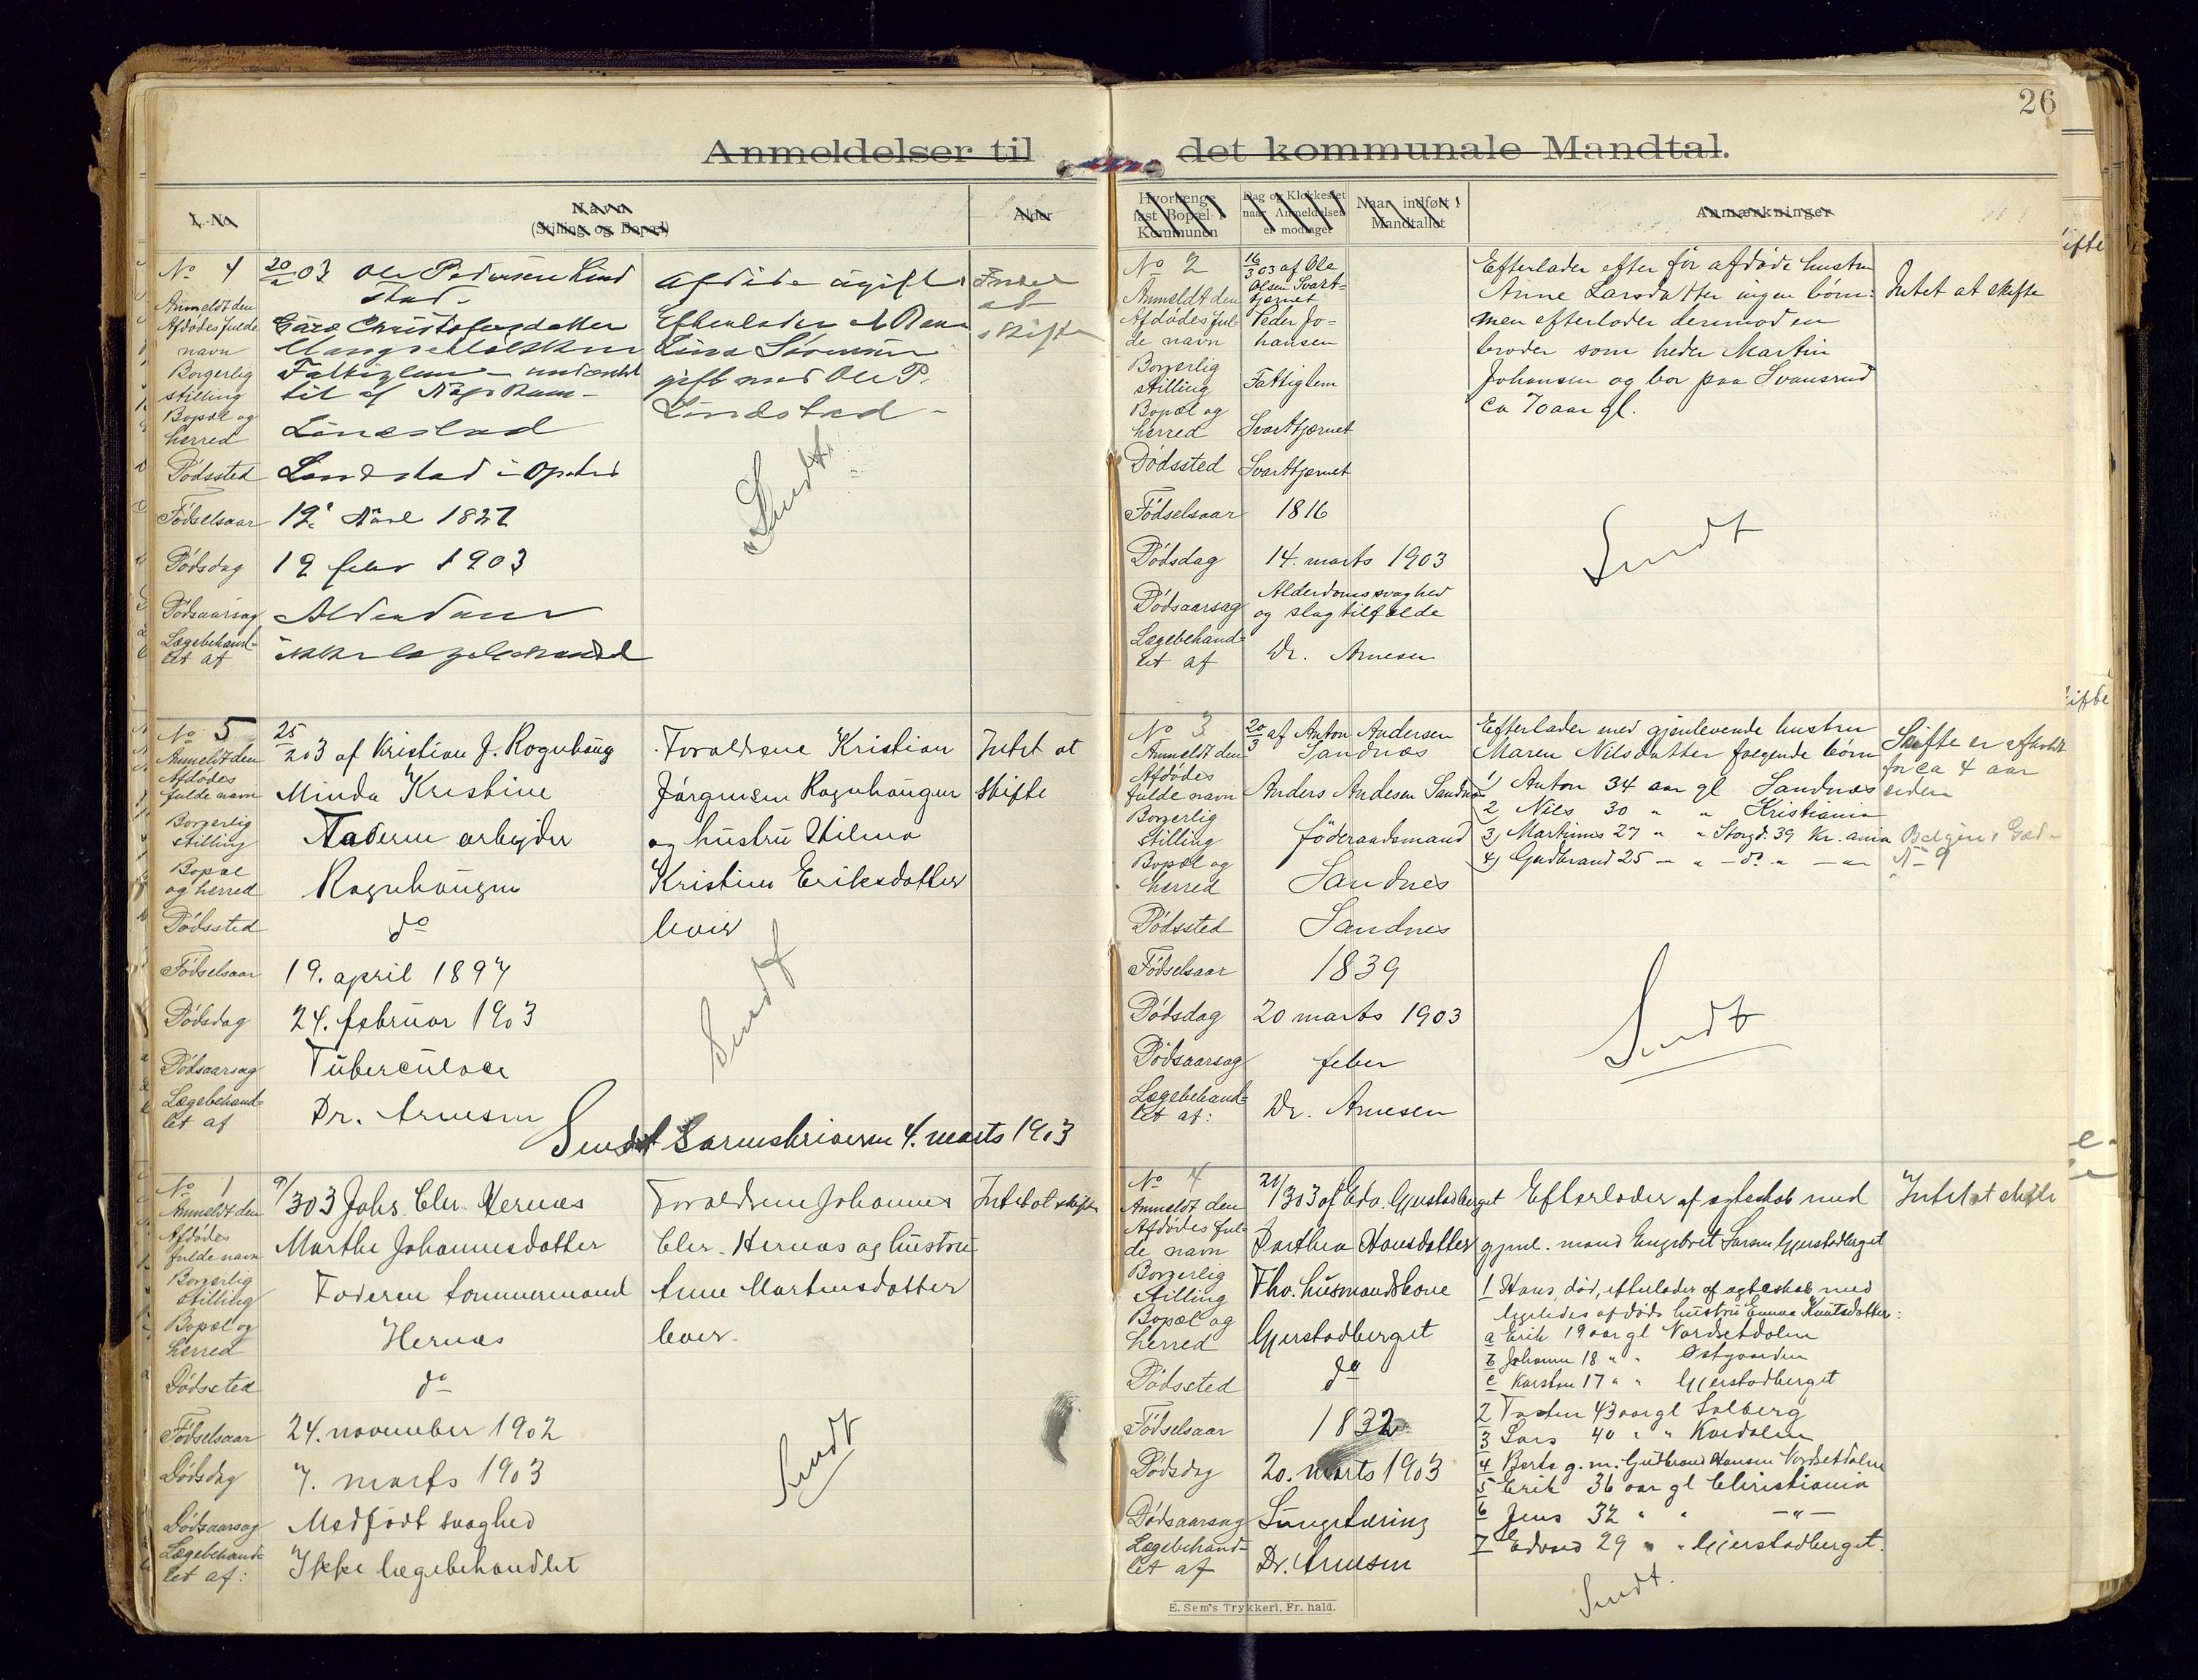 26
Anmeldelser til det kommunale Mandtal.
L. No
Navn
(Stilling og Bopæl)
Alder
No 4
20/2 03 Ole Pedersen Lind
stad
Anmeldt den
Afdødes fulde
navn
Borgerlig
stilling
Fattiglem
til af
Bopæl og
herred
Dødssted
Fødselsaar
Dødsdag 19 febr 1903
Dødsaarsag Alderdom
Lægebehand-
let af
Afdøde ugift
Efterlader
gift med Ole P.
Lindstad
Intet
at
skifte
Sendt
No 5
25/2 03 af Kristian J. Rognhaug
Anmeldt den
Afdødes
fulde navn Minda Kristine
Borgerlig
stilling Faderen arbejder
Bopæl
og herred Rognhaugen
Dødssted do
Fødselsaar 19. april 1897
Dødsdag 24. februar 1903
Dødsaarsag Tuberculose
Lægebehand-
let af Dr. Arnesen
Foraldrene Kristian
Jørgensen Rognhaugen
og hustru Hilma
Kristine Eriksdatter
lever
Intet at
skifte
Sendt
Sendt Sorenskriveren 4. marts 1903
No 1
9/3 03 Johs. Chr. Hernæs
Anmeldt den
Afdødes
fulde navn Marthe Johannesdatter
Borgerlig
stilling Faderen tømmermand
Bopæl og
herred Hernæs
Dødssted do
Fødselsaar 24. november 1902
Dødsdag 7. marts 1903
Dødsaarsag Medfødt svaghed
Lægebehand-
let af: Ikke lægebehandlet
Foraldrene Johannes
Chr. Hernæs og hustru
Anne Martinsdatter
lever.
Intet at skifte
Sendt
Hvorlænge
fast Bopæl i
Kommunen
Dag og Klokkeslet
naar Anmeldelsen
er modtaget
Naar indført i
Mandtallet
Anmærkninger
No 2
16/3 03 af Ole
Olsen Svart-
tjærnet
Anmeldt den
Afdødes ful-
de navn Peder Jo-
hansen
Borgerlig
stilling Fattiglem
Bopæl og
herred Svarttjærnet
Dødssted Svarttjærnet
Fødselsaar 1816
Dødsdag 14. marts 1903
Dødsaarsag Alderdomssvaghed
og slagtilfælde
Lægebehand-
let af Dr. Arnesen
Efterlader efter før afdøde hustru
Anne Larsdatter ingen børn:
men efterlader derimod en
broder som heder Martin
Johansen og bor paa Svansrud
ca 70 aar gl.
Intet at skifte
Sendt
No 3
20/3 af Anton Andersen
Sandnæs
Anmeldt den
Afdødes
fulde navn Anders Andesen Sandnes
Borgerlig
stilling føderaadsmand
Bopæl og
herred Sandnes
Dødssted Sandnes
Fødselsaar 1839
Dødsdag 20 marts 1903
Dødsaarsag feber
Lægebehand-
let af: Dr. Arnesen
Efterlader med gjenlevende hustru
Maren Nilsdatter følgende børn
1) Anton 34 aar gl Sandnæs
2 Nils 30 " " Kristiania
3) Martinus 27 " " Storgd. 39 Kr.ania
4) Gudbrand 25 — " — do " — "
Skifte er afholdt
for ca 4 aar
siden
No 9
Sendt
No 4
21/3 03 af Edv. Gjerstadberget
Anmeldt den
Afdødes ful-
de navn Darthea Hansdatter
Borgerlig
stilling Fhv. husmandskone
Bopæl og
herred Gjerstadberget
Dødssted do
Fødselsaar 1832
Dødsdag 20. marts 1903
Dødsaarsag Lungetæring
Lægebehand-
let af Dr. Arnesen
Efterlader af egteskab med
gjenl. mand Engebret Larsen Gjerstadberget
1 Hans, død, efterlader af egteskab med
ligeledes afdøde hustru Emma Knutsdatter:
a Erik 19 aar gl Nordsetdalen
b Johanne 18 " " Østgaarden
c Karsten 17 " " Gjerstadberget
2 Torsten 43 aar gl Solberg
3 Lars 40 " "
4 Berte g.m. Gudbrand Hansen Nordsetdalen
5 Erik 36 aar gl Christiania
6 Jens 32 " " —"—
7 Edvard 29 " " Gjerstadberget.
Intet at skifte
Sendt.
E. Sem's Trykkeri, Fr.hald.